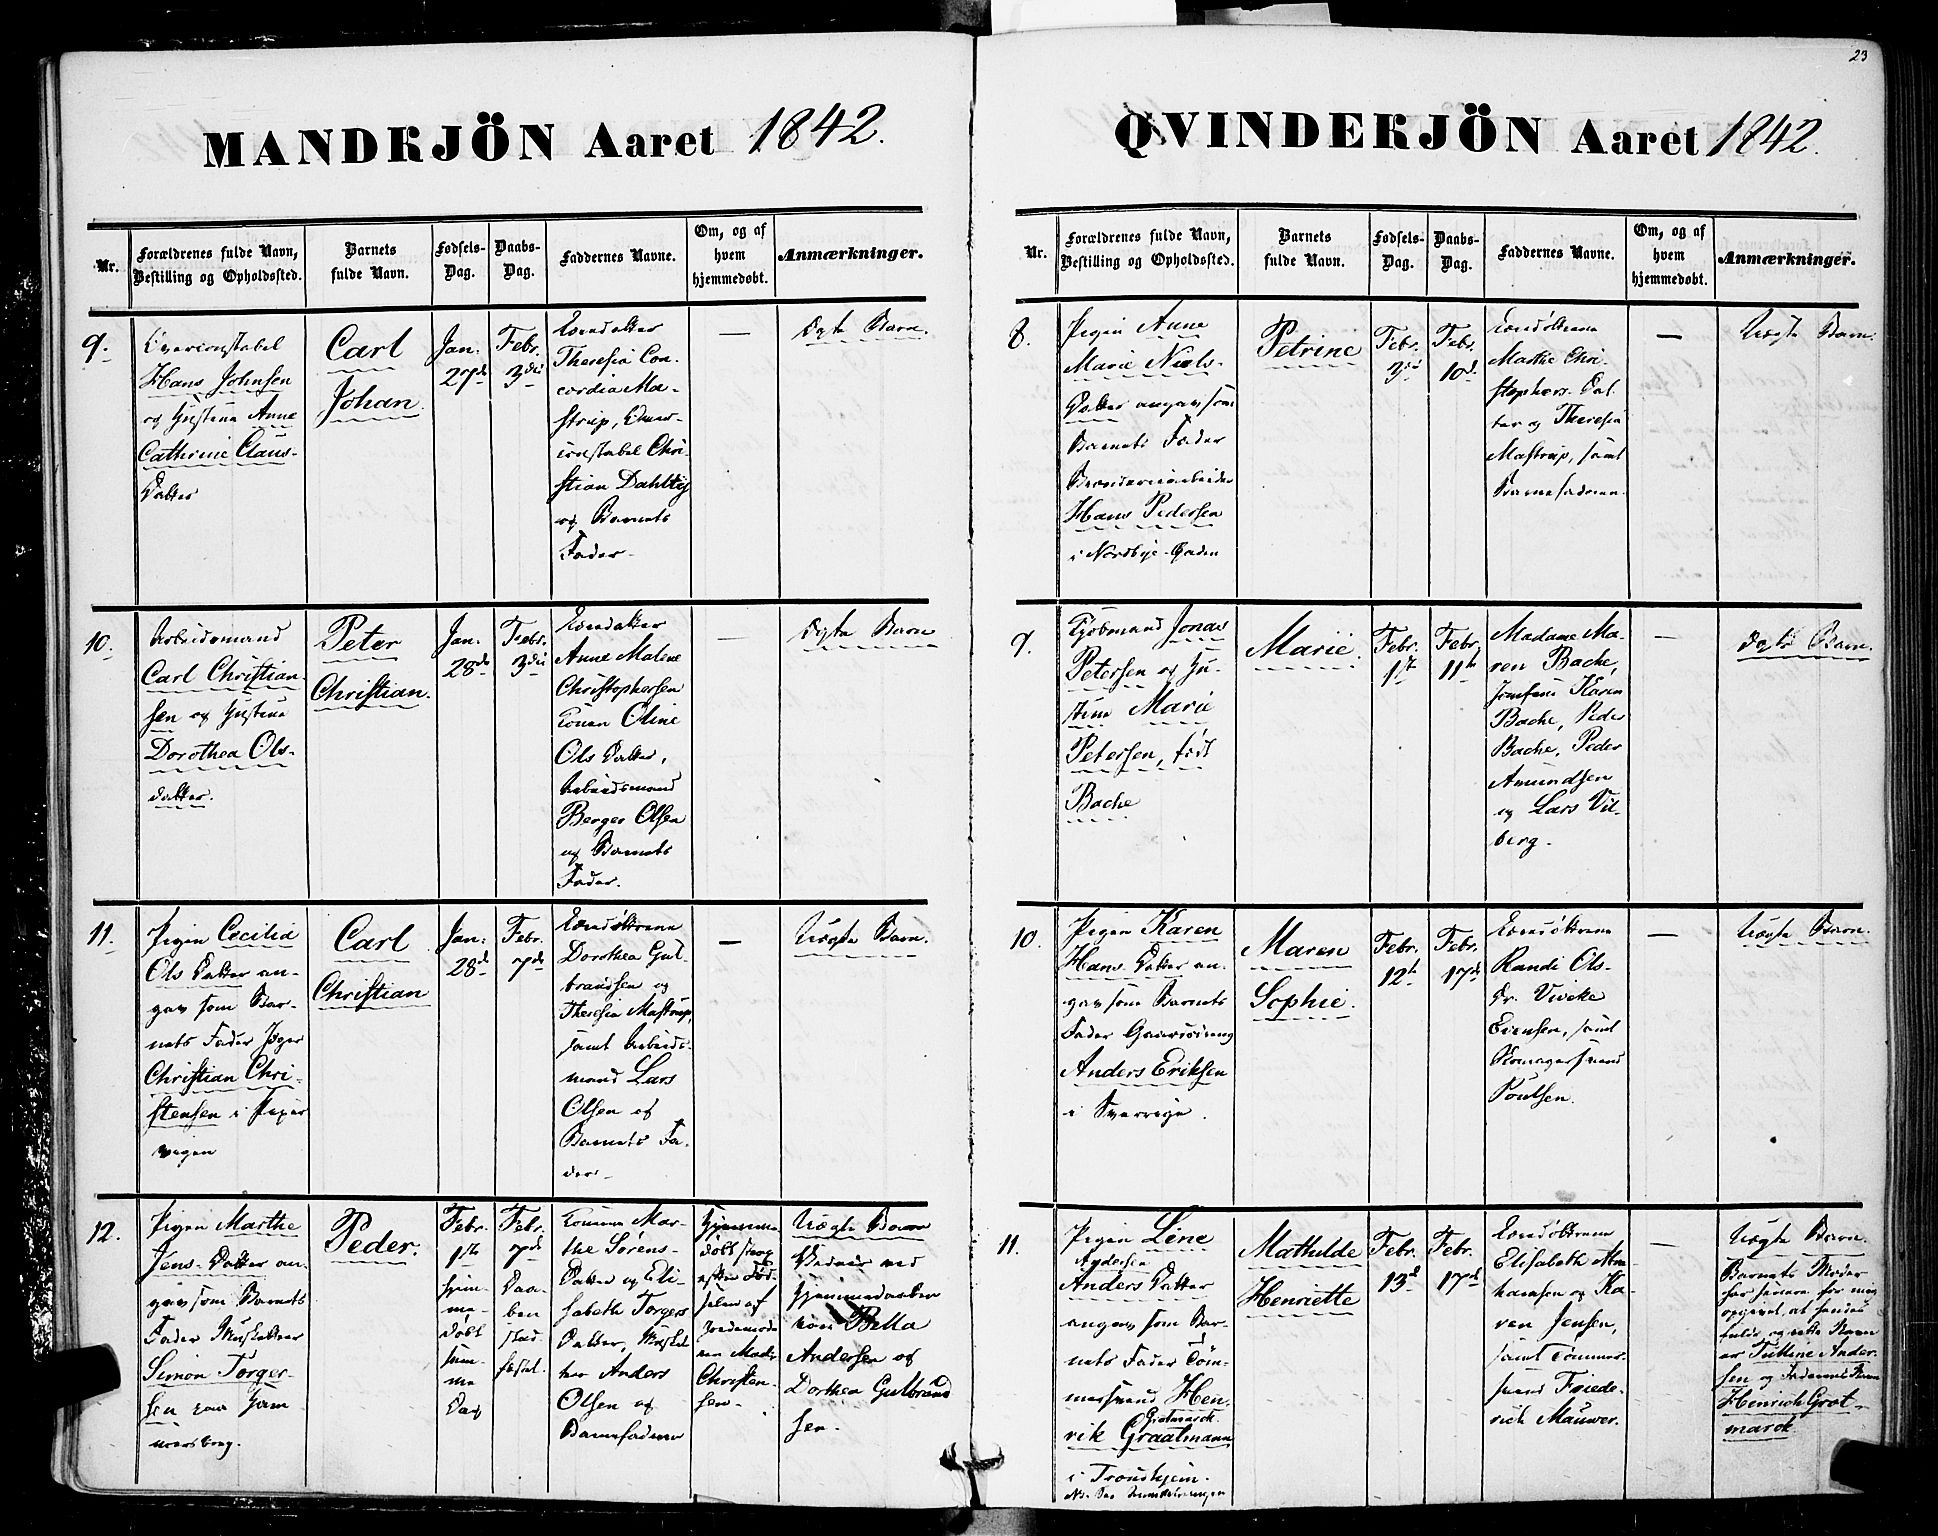 23
MANDKJÖN Aaret 1842.
Nr.
Forældrenes fulde Navn,
Bestilling og Opholdssted.
Barnets
fulde Navn.
Fødsels-
Dag.
Daabs-
Dag.
Faddernes Navne.
Om, og af
hvem
hjemmedøbt.
Anmærkninger.
9.
Hans Johnsen
og Hustrue Anne
Cathrine Claus-
Datter
Carl
Johan.
Jan.
27de
Febr.
3die
Theresia Con-
cordia Ma-
strup,
constabel Chri-
stian Dahlby
og Barnets
Fader.
—
Ægte Barn.
10.
Arbeidsmand
Carl Christian-
sen og Hustrue
Dorothea Ols-
datter.
Peter
Christian.
Jan.
28de
Febr.
3die
Anne Maline
Christophersen
Konen Oline
Ols Datter,
Arbeidsmand
Berger Olsen
og Barnets
Fader.
—
Ægte Barn
11.
Pigen Cecilia
Ols Datter an-
gav som Bar-
nets Fader Jæger
Christian Chri-
stensen i Piper
vigen
Carl
Christian
Jan.
28de
Febr.
7de
Dorothea Gul-
brandsen og
Theresia Mastrup,
samt Arbeids-
mand Lars
Olsen og
Barnets Fa-
der.
—
Uægte Barn.
12.
Pigen Marthe
Jens-Datter an-
gav som Barnets
Fader Musketeer
Simon Torger-
sen paa Ham-
mersborg.
Peder.
Febr.
1ste
hjem-
me-
døbt
sam-
me
Dag
Febr.
7de
Daa-
ben
stad-
fæstet.
Konerne Mar-
the Sørens-
Datter og Eli-
sabeth Torgers
Datter, Musket
teer Anders
Olsen og
Barnefaderen
Hjemme
døbt strax
efter Fød-
selen af
Jordemode-
ren Mad.
Christen-
sen.
Uægte Barn
Vidner ved
Hjemmedaaben
vare Bella
Andersen og
Dorthea Gulbrand
sen.
QVINDEKJÖN Aaret 1842.
Nr.
Forældrenes fulde Navn,
Bestilling og Opholdssted.
Barnets
fulde Navn.
Fødsels-
Dag.
Daabs-
Dag.
Faddernes Navne.
Om, og af
hvem
hjemmedøbt.
Anmærkninger.
8.
Pigen Anne
Marie Niels-
Datter angav som
Barnets Fader
Hans Pedersen
i Nordbye-Gaden
Petrine
Febr.
3die
Febr.
10de
Marthe Chri-
stophers-Dat-
ter og Theresia
Mastrup, samt
Barnefaderen.
—
Uægte Barn.
9.
Kjøbmand Jonas
Petersen og Hu-
strue Marie
Petersen, født
Bache
Marie.
Febr.
1ste
Febr.
11te
Madame Ma-
ren Bache,
Jomfrue Karen
Bache, Peder
Bache, Peder
Amundsen
og Lars Vil-
berg.
—
Ægte Barn.
10.
Pigen Karen
Hans-Datter an-
gav som Barnets
Fader
Anders Eriksen
i Sverrige.
Maren
Sophie.
Febr.
12te
Febr.
17de
Randi Ols-
Dr. Viveke
Evensen, samt
Skomagersvend
Poulsen.
—
Uægte Barn.
11.
Pigen Lene
Andersen
Anders Datter
angav som Bar-
nets Fader Tøm-
mersvend Hen-
Grotmarck
rik Graatmann
i Trondhjem.
Mathilde
Henriette
Febr.
13de
Febr.
17de
Elisabeth Abra-
hamsen og Ka-
ren Jensen,
samt Tømmer-
svend Friede-
rich Mauwer.
—
Uægte Barn.
Barnets Moder
har senere for mig
opgivet, at hendes
fulde og rette Navn
er Tulline Ander-
sen og Faderens Navn
Henrich Grot-
marck.